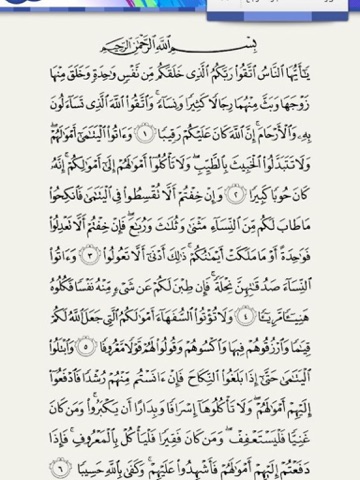 بِسْمِ اللَّهِ الرَّحْمَٰنِ الرَّحِيمِ
يَٰٓأَيُّهَا ٱلنَّاسُ ٱتَّقُوا۟ رَبَّكُمُ ٱلَّذِى خَلَقَكُم مِّن نَّفْسٍ وَٰحِدَةٍ وَخَلَقَ مِنْهَا
زَوْجَهَا وَبَثَّ مِنْهُمَا رِجَالًا كَثِيرًا وَنِسَآءً ۚ وَٱتَّقُوا۟ ٱللَّهَ ٱلَّذِى تَسَآءَلُونَ
بِهِۦ وَٱلْأَرْحَامَ ۚ إِنَّ ٱللَّهَ كَانَ عَلَيْكُمْ رَقِيبًا ١ وَءَاتُوا۟ ٱلْيَتَٰمَىٰٓ أَمْوَٰلَهُمْ ۖ
وَلَا تَتَبَدَّلُوا۟ ٱلْخَبِيثَ بِٱلطَّيِّبِ ۖ وَلَا تَأْكُلُوٓا۟ أَمْوَٰلَهُمْ إِلَىٰٓ أَمْوَٰلِكُمْ ۚ إِنَّهُۥ
كَانَ حُوبًا كَبِيرًا ٢ وَإِنْ خِفْتُمْ أَلَّا تُقْسِطُوا۟ فِى ٱلْيَتَٰمَىٰ فَٱنكِحُوا۟
مَا طَابَ لَكُم مِّنَ ٱلنِّسَآءِ مَثْنَىٰ وَثُلَٰثَ وَرُبَٰعَ ۖ فَإِنْ خِفْتُمْ أَلَّا تَعْدِلُوا۟
فَوَٰحِدَةً أَوْ مَا مَلَكَتْ أَيْمَٰنُكُمْ ۚ ذَٰلِكَ أَدْنَىٰٓ أَلَّا تَعُولُوا۟ ٣ وَءَاتُوا۟
ٱلنِّسَآءَ صَدُقَٰتِهِنَّ نِحْلَةً ۚ فَإِن طِبْنَ لَكُمْ عَن شَىْءٍ مِّنْهُ نَفْسًا فَكُلُوهُ
هَنِيٓـًٔا مَّرِيٓـًٔا ٤ وَلَا تُؤْتُوا۟ ٱلسُّفَهَآءَ أَمْوَٰلَكُمُ ٱلَّتِى جَعَلَ ٱللَّهُ لَكُمْ
قِيَٰمًا وَٱرْزُقُوهُمْ فِيهَا وَٱكْسُوهُمْ وَقُولُوا۟ لَهُمْ قَوْلًا مَّعْرُوفًا ٥ وَٱبْتَلُوا۟
ٱلْيَتَٰمَىٰ حَتَّىٰٓ إِذَا بَلَغُوا۟ ٱلنِّكَاحَ فَإِنْ ءَانَسْتُم مِّنْهُمْ رُشْدًا فَٱدْفَعُوٓا۟
إِلَيْهِمْ أَمْوَٰلَهُمْ ۖ وَلَا تَأْكُلُوهَآ إِسْرَافًا وَبِدَارًا أَن يَكْبَرُوا۟ ۚ وَمَن كَانَ
غَنِيًّا فَلْيَسْتَعْفِفْ ۖ وَمَن كَانَ فَقِيرًا فَلْيَأْكُلْ بِٱلْمَعْرُوفِ ۚ فَإِذَا
دَفَعْتُمْ إِلَيْهِمْ أَمْوَٰلَهُمْ فَأَشْهِدُوا۟ عَلَيْهِمْ ۚ وَكَفَىٰ بِٱللَّهِ حَسِيبًا ٦